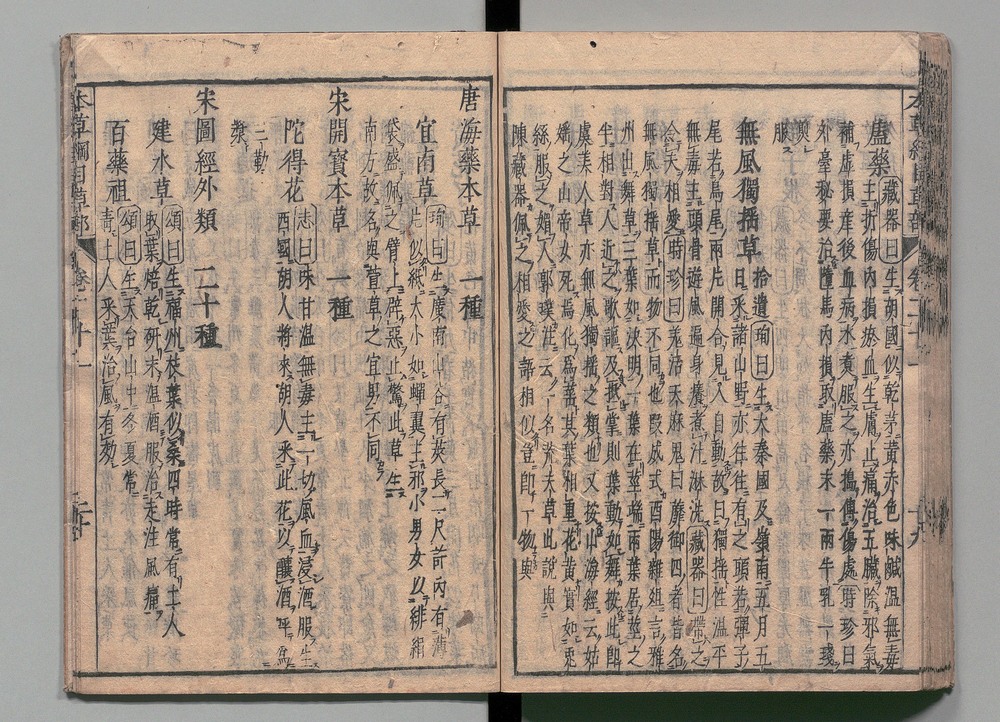 盧藥 藏器曰生胡國似乾茅黃赤色味鹹溫無毒
主折傷內損瘀血生膚止痛治五臟除邪氣
補虛損產後血病水煮服之亦搗傅傷處時珍曰
外臺秘要治墮馬內損取盧藥末一兩牛乳一盞
煎服
無風獨搖草 拾遺 珣曰生大秦國及嶺南五月五
日采諸山野亦往往有之頭若彈子
尾若鳥尾兩片開合見人自動故曰獨搖性溫平
無毒主頭骨遊風遍身癢煮汁淋洗藏器曰帶之
令夫相愛時珍曰羌活天麻鬼臼薇銜四者皆名
無風獨搖草而物不同也段成式酉陽雜俎言雅
州出舞草三葉如決明一葉在莖端兩葉居莖之
半相對人近之歌謳及抵掌則葉動如舞按此即
虞美人草亦無風獨搖之類也又按山海經云姑
媱之山帝女死焉化為䔄草其葉相重花黃實如兎
絲服之媚人郭璞注云一名荒夫草此說與
陳藏器佩之相愛之語相似豈即一物與
唐海藥本草 一種
宜南草 珣曰生廣南山谷有莢長二尺許內有薄
片似紙大小如蟬翼主邪小男女以緋絹
袋盛佩之臂上辟惡止驚此草生
南方故名與萱草之宜男不同
宋開寶本草 一種
陀得花 志曰味甘溫無毒主一切風血浸酒服生
西國胡人將來胡人采此花以釀酒呼為
三勒
漿
宋圖經外類 二十種
建水草 頌曰生福州枝葉似桑四時常有土人
取葉焙乾研末溫酒服治走注風痛
百藥祖 頌曰生天台山中冬夏常
青土人采葉治風有効